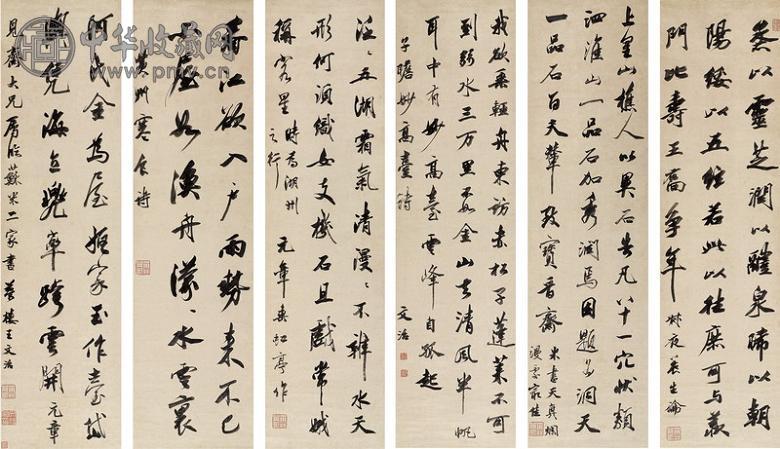 蒸以靈芝潤以醴泉晞以朝
陽綏以五絃若此以往庶可与羨
門比壽王喬爭年 叔夜養生論
上皇山樵人以異石告凡八十一穴狀類
泗淮山一品石加秀潤焉因題為洞天
一品石百夫輦致寶晉齋 米書天真爛
漫 最佳
我欲乘輕舟東訪赤松子蓬萊不可
到弱水三万里不如金山去清風半帆
耳中有妙高臺雲峰自孤起
子瞻妙高臺詩 文治
泛〻五湖霜氣清漫〻不辨水天
形何須織女支機石且戲常娥
稱客星 時為湖州
之行 元章垂虹亭作
春江欲入户雨勢來不已
小屋如漁舟濛〻水雲裏
黃州寒食詩
金為屋姬家玉作臺
海立 雲開 元章
見齋大兄屬臨蘇米二家書 夢樓王文治
中华收藏网